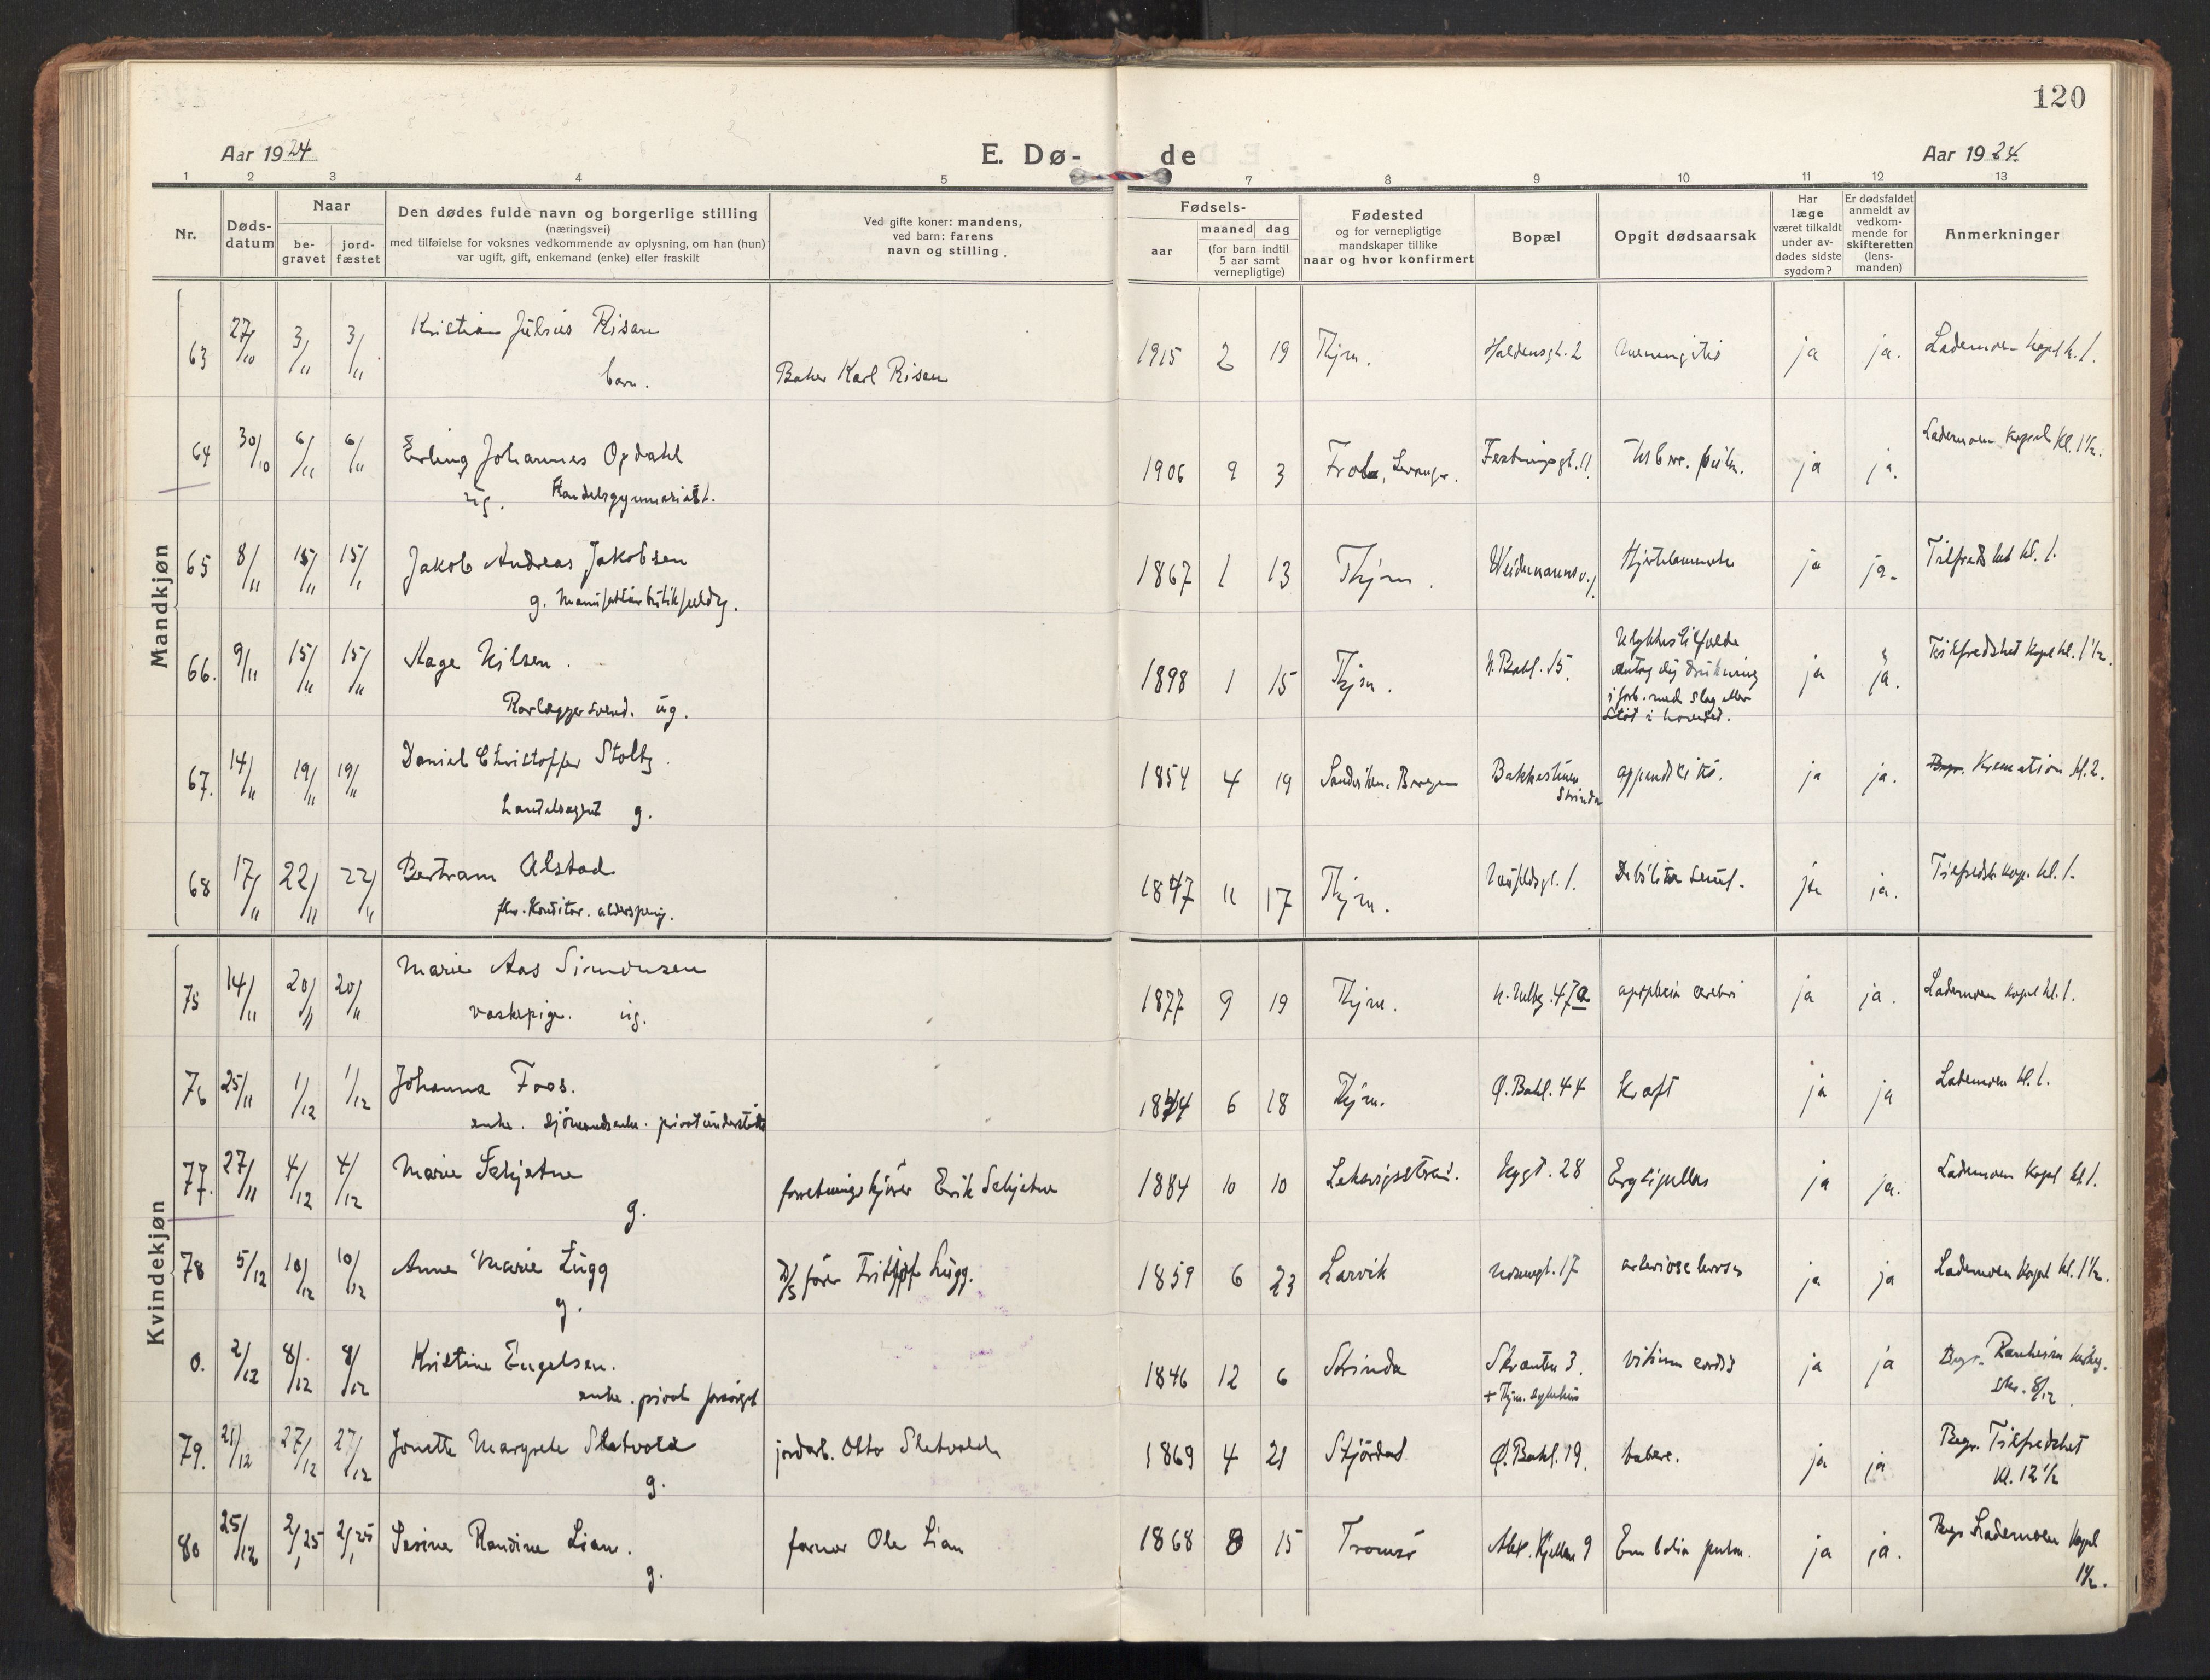 120
Aar 1924
E. Dø- de
Aar 1924.
1 2 3 4 5 7 8 9 10 11 12 13
Nr.
Døds-
datum
Naar
be-
gravet
jord-
fæstet
Den dødes fulde navn og borgerlige stilling
(næringsvei)
med tilføielse for voksnes vedkommende av oplysning, om han (hun)
var ugift, gift, enkemand (enke) eller fraskilt
Ved gifte koner: mandens,
ved barn: farens
navn og stilling.
Fødsels-
aar
maaned dag
(for barn indtil
5 aar samt
vernepligtige)
Fødested
og for vernepligtige
mandskaper tillike
naar og hvor konfirmert
Bopæl
Opgit dødsaarsak
Har
læge
været tilkaldt
under av-
dødes sidste
sygdom?
Er dødsfaldet
anmeldt av
vedkom-
mende for
skifteretten
(lens-
manden)
Anmerkninger
Mandkjøn
63 27/10 3/11 3/11 Kristian Julius Risan
barn. Baker Karl Risan
1915 2 19 Thjm. meningitis ja ja. Lademoen kapel kl. 1.
64 30/10 6/11 6/11 Erling Johannes Opdahl
ug. Handelsgymnasiast.
1906 9 3 Frol, Levanger. Festningsgt. 11 ja ja. Lademoen Kapel kl. 1½.
65 8/11 15/11 15/11 Jakob Andreas Jakobsen
g.
1867 1 13 Thjm. Weidemannsv. ja ja. Tilfredshet kl. 1.
66. 9/11 15/11 15/11 Aage Nilsen.
Rørlæggersvend. ug.
1898 1 15 Thjm. N. Bakl. 15. Ulykkestilfælde
drukning
i forb. med slag eller
støt i hovedet.
ja ja. Tilfredshet Kapel kl. 1½.
67. 14/11 19/11 19/11 Daniel Christoffer Stoltz.
handelsagent g.
1854 4 19 Sandviken. Bergen Bakkestuen
Strinda
appendicitis. ja ja. Kremation kl. 2.
68 17/11 22/11 22/11 Bertram Alstad
fhv. Konditor. alderspens.
1847 11 17 Thjm. ja ja. Tilfredsh. kap. kl. 1.
Kvindekjøn
75 14/11 20/11 20/11 Marie Aas Simonsen
vaskepige. ug.
1877 9 19 Thjm. 47a apoplexia cerebri ja ja. Lademoen kapel kl. 1.
76 25/11 1/12 1/12 Johanna Foos.
enke. sjømandsenke. privat understøtt.
6 18 Thjm. Ø. Bakl. 44 Kræft ja ja Lademoen kl. 1.
77. 27/11 4/12 4/12 Marie Seljetne
g. forretningskjører Erik Seljetne
1884 10 10 Leksvigstrand. Nygt. 28 ja ja. Lademoen Kapel kl. 1.
78 5/12 10/12 10/12 Anna Marie Lugg
g. D/S fører Fritjof Lugg.
1859 6 23 Larvik 17 arteriosclerose ja ja Lademoen Kapel kl. 1½.
0. 2/12 8/12 8/12 Kristine Engelsen.
enke. privat forsørget
1846 12 6 Strinda 3.
+ Thjm. sykehus
vitium cordis ja ja Begr. Ranheim
8/12
79. 21/12 27/12 27/12 Jonette Margrete Sletvold
g. jordarb. Otto Sletvold
1869 4 21 Stjørdal Ø. Bakl. 19. tuberc. ja ja Begr. Tilfredshet
kl. 12½
80 25/12 2/1 25 2/1 25 Randine Lian.
g. farver Ole Lian
1868 8 15 Tromsø Alex. Kjellan 9 Embolia pulm. ja ja. Begr Lademoen Kapel
1½.